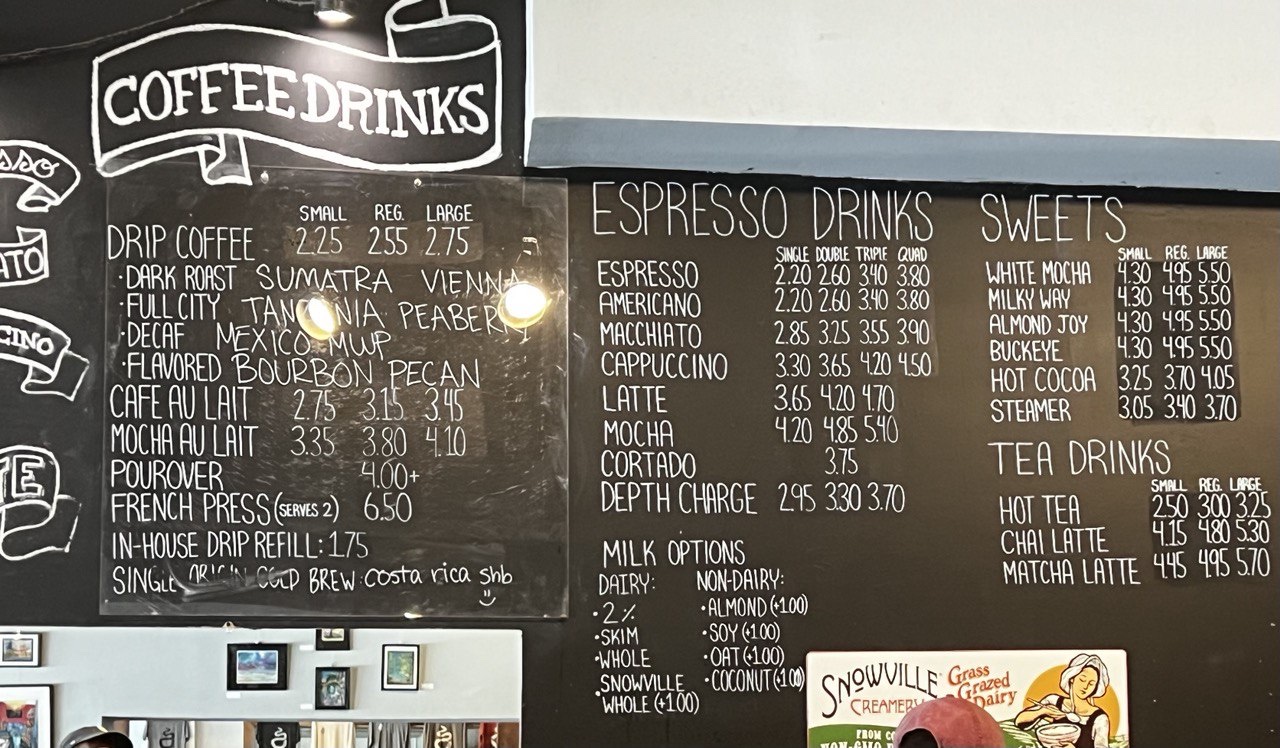 COFFEE DRINKS
SSO
ATO
CINO
TE
SMALL REG. LARGE
DRIP COFFEE 2.25 2.55 2.75
·DARK ROAST SUMATRA VIENNA
·FULL CITY TANZANIA PEABERRY
·DECAF MEXICO MWP
·FLAVORED BOURBON PECAN
CAFE AU LAIT 2.75 3.15 3.45
MOCHA AU LAIT 3.35 3.80 4.10
POUROVER 4.00+
FRENCH PRESS (SERVES 2) 6.50
IN-HOUSE DRIP REFILL: 1.75
SINGLE ORIGIN COLD BREW: costa rica shb
ESPRESSO DRINKS
SINGLE DOUBLE TRIPLE QUAD
ESPRESSO 2.20 2.60 3.40 3.80
AMERICANO 2.20 2.60 3.40 3.80
MACCHIATO 2.85 3.25 3.55 3.90
CAPPUCCINO 3.30 3.65 4.20 4.50
LATTE 3.65 4.20 4.70
MOCHA 4.20 4.85 5.40
CORTADO 3.75
DEPTH CHARGE 2.95 3.30 3.70
MILK OPTIONS
DAIRY:
·2%
·SKIM
·WHOLE
·SNOWVILLE
WHOLE (+1.00)
NON-DAIRY:
·ALMOND (+1.00)
·SOY (+1.00)
·OAT (+1.00)
·COCONUT (+1.00)
SWEETS
SMALL REG. LARGE
WHITE MOCHA 4.30 4.95 5.50
MILKY WAY 4.30 4.95 5.50
ALMOND JOY 4.30 4.95 5.50
BUCKEYE 4.30 4.95 5.50
HOT COCOA 3.25 3.70 4.05
STEAMER 3.05 3.40 3.70
TEA DRINKS
SMALL REG. LARGE
HOT TEA 2.50 3.00 3.25
CHAI LATTE 4.15 4.80 5.30
MATCHA LATTE 4.45 4.95 5.70
SNOWVILLE
CREAMERY
Grass
Grazed
Dairy
FROM CO
NON-GMO